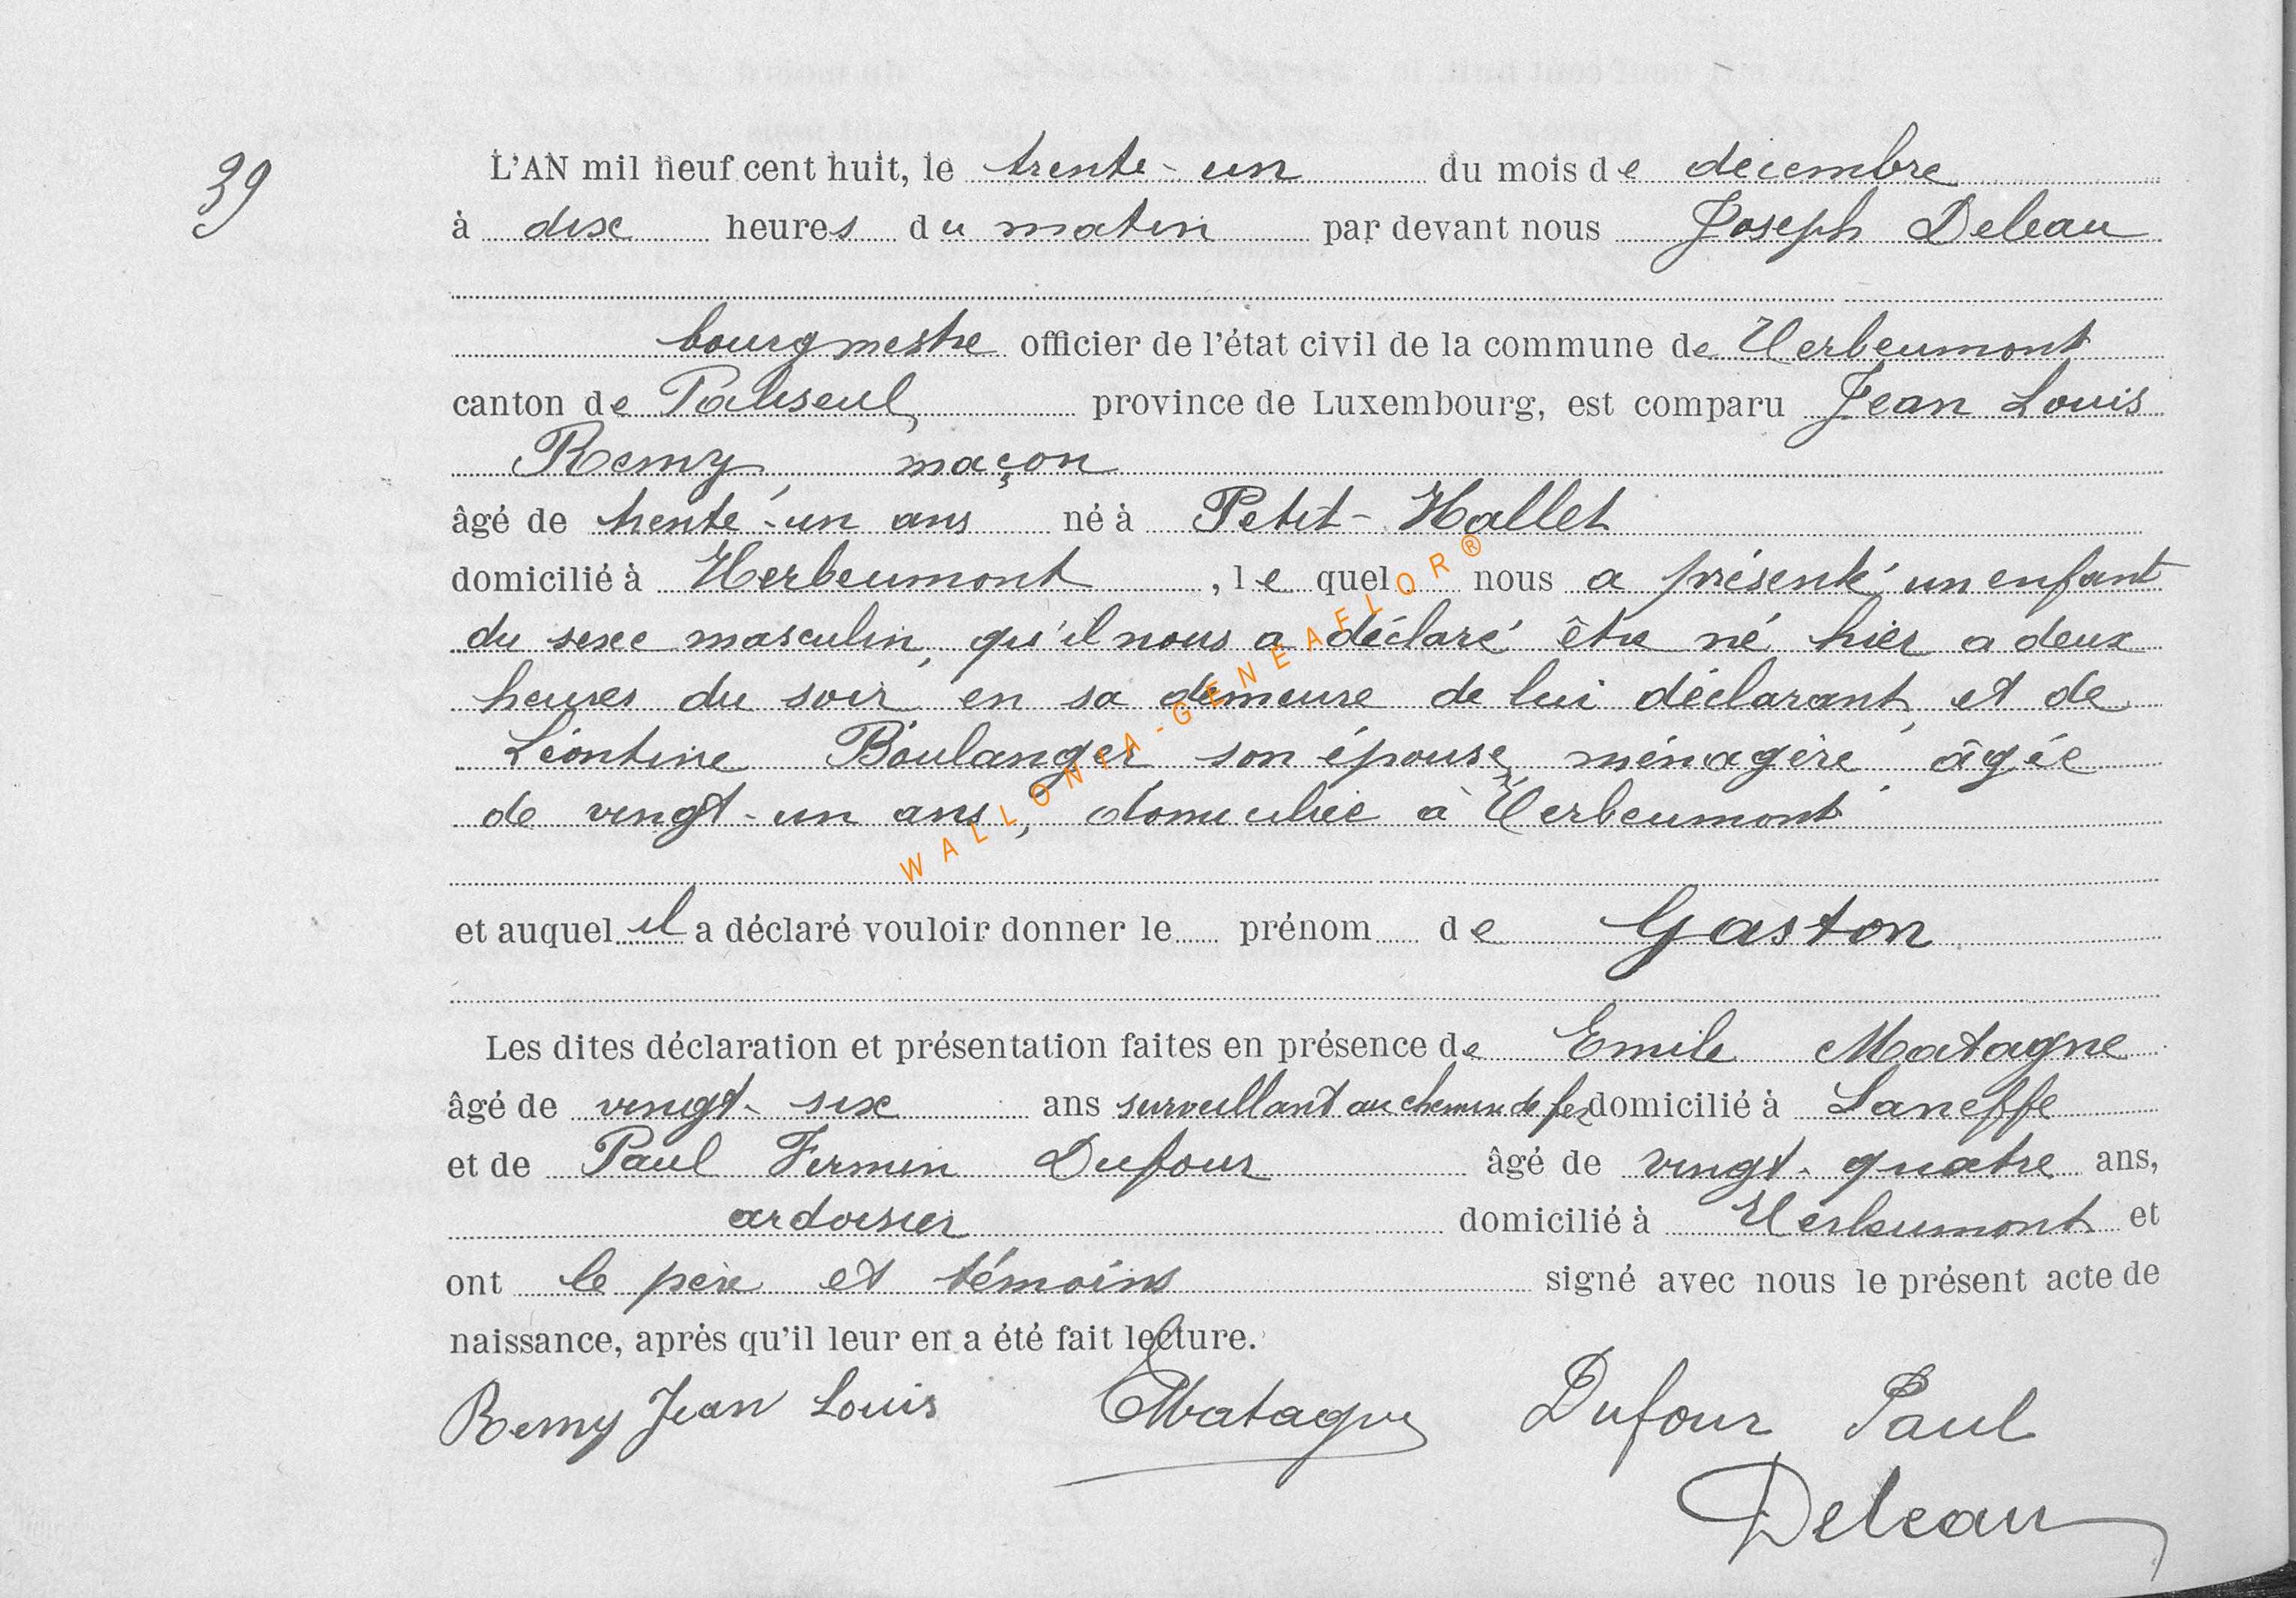 39
L'AN mil neuf cent huit, le trente-un du mois de décembre
à dix heures du matin par devant nous Joseph Deleau
bourgmestre officier de l'état civil de la commune de Herbeumont
canton de Paliseul, province de Luxembourg, est comparu Jean Louis
Remy, maçon
âgé de trente-un ans né à Petit-Hallet
domicilié à Herbeumont, le quel nous a présenté un enfant
du sexe masculin, qu'il nous a déclaré être né hier a deux
heures du soir en sa demeure de lui déclarant, et de
Léontine Boulanger son épouse, ménagère, âgée
de vingt-un ans, domiciliée à Herbeumont
et auquel il a déclaré vouloir donner le prénom de Gaston
Les dites déclaration et présentation faites en présence de Emile Matagne
âgé de vingt-six ans surveillant au chemin de fer domicilié à Laneffe
et de Paul Firmin Dufour âgé de vingt-quatre ans,
ardoisier domicilié à Herbeumont et
ont le père et témoins signé avec nous le présent acte de
naissance, après qu'il leur en a été fait lecture.
Remy Jean Louis EMatagne Dufour Paul
Deleau
WALLONIA-GENEAFLOR®